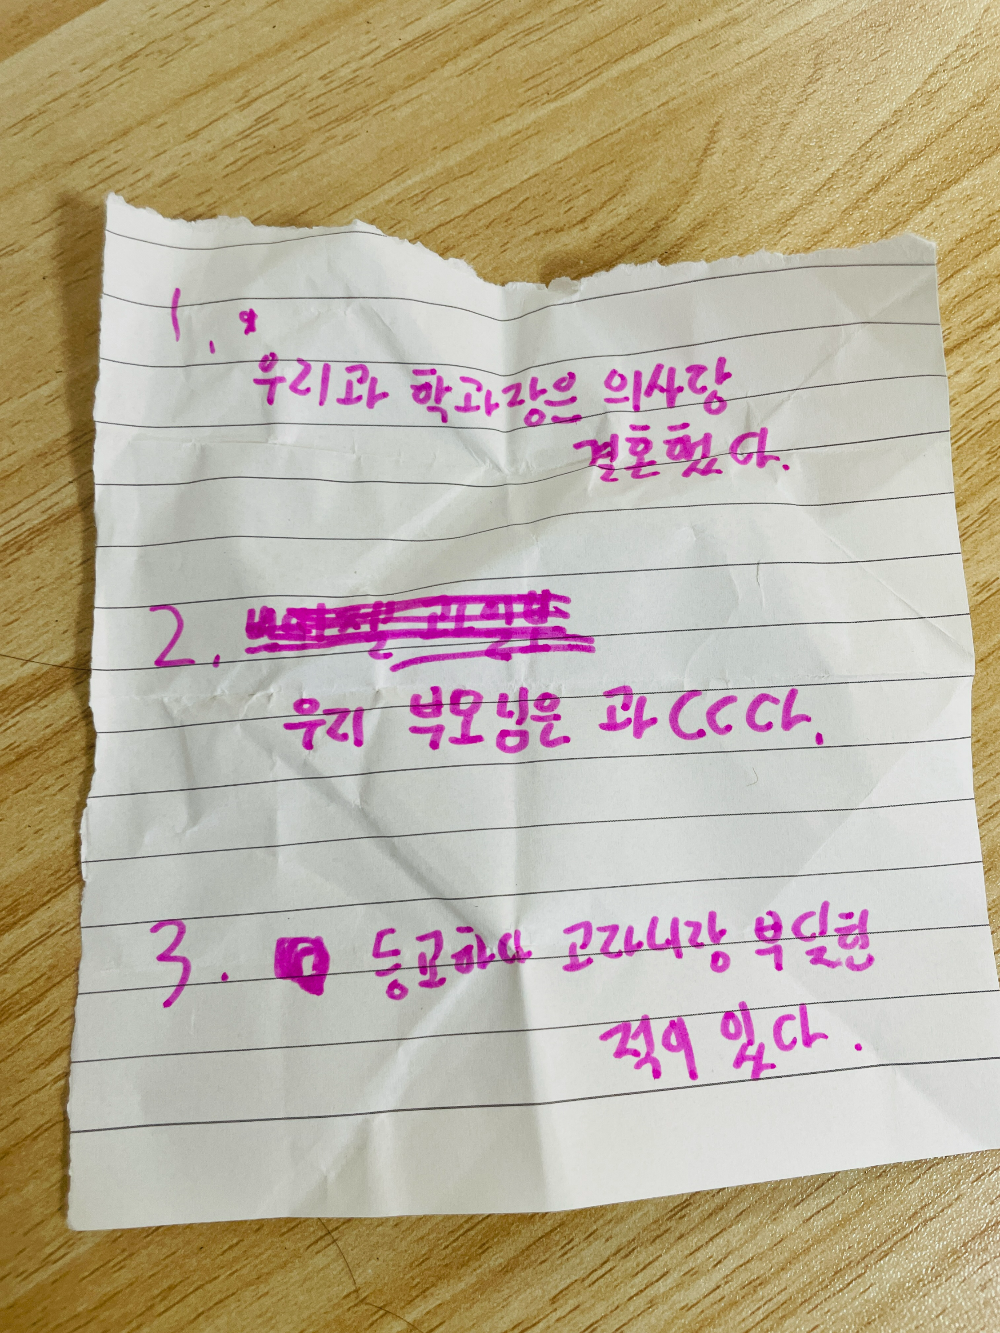 1.
우리과 학과장은 의사랑
결혼했다.
2.
우리 부모님은 과CC다.
3. 등교하다 고라니랑 부딪힌
적이 있다.